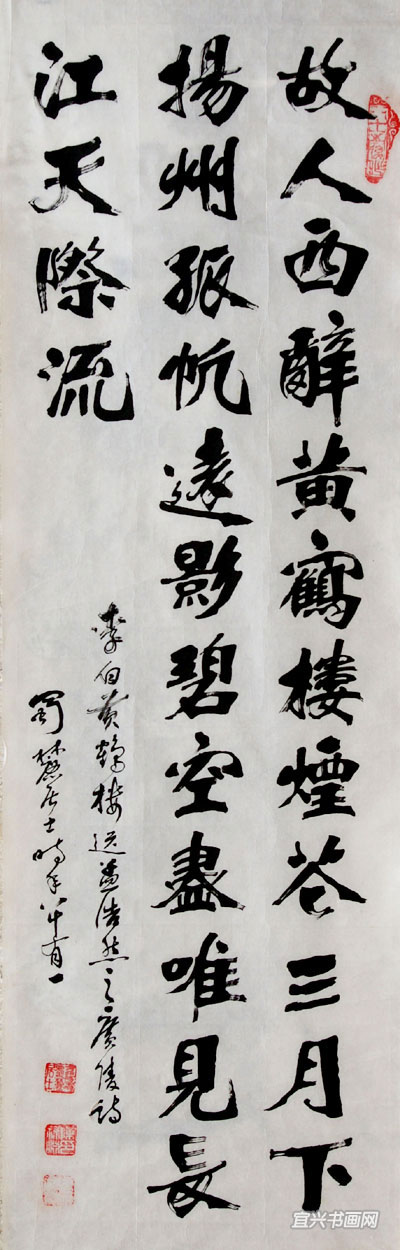 故人西辭黄鶴樓煙花三月下
揚州孤帆遠影碧空盡唯見長
江天際流
李白黄鶴樓送孟浩然之廣陵詩
蜀麓居士時年八十有一
宜兴书画网